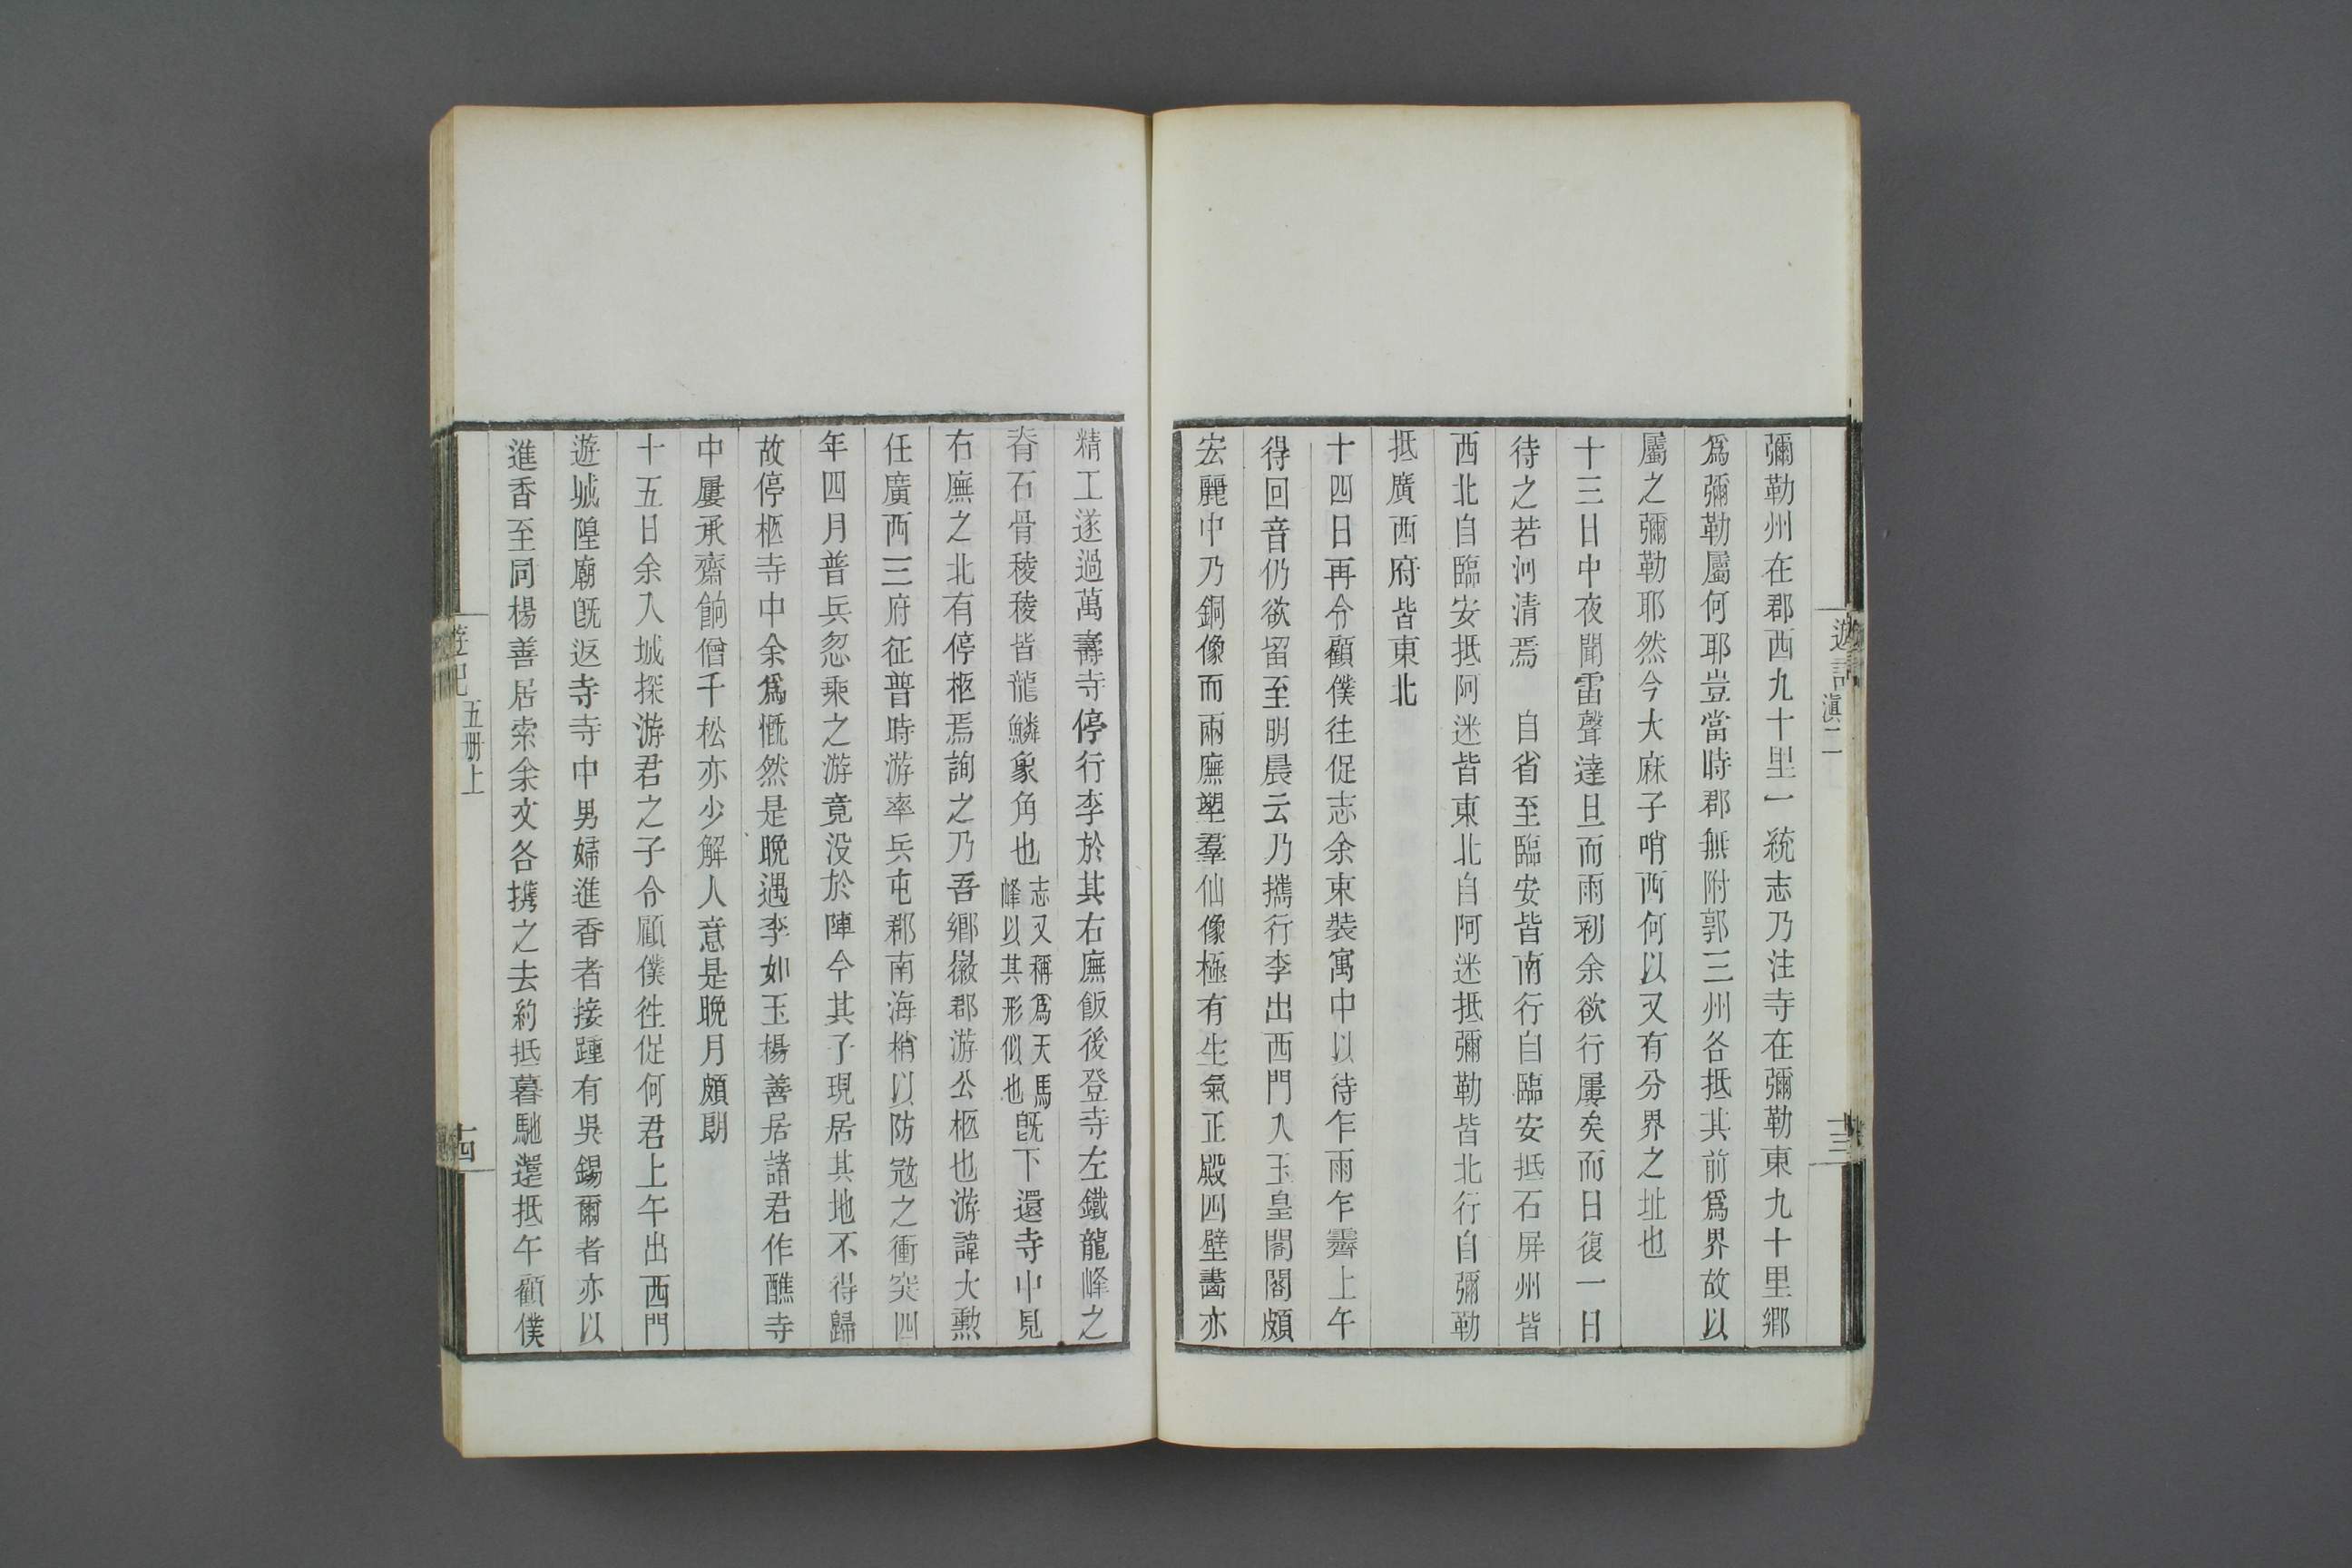 遊記
滇二
十三
彌勒州在郡西九十里一統志乃注寺在彌勒東九十里鄉
爲彌勒屬何耶豈當時郡無附郭三州各抵其前爲界故以
屬之彌勒耶然今大麻子哨西何以又有分界之址也
十三日中夜聞雷聲達旦而雨初余欲行屢矣而日復一日
待之若河清焉　自省至臨安皆南行自臨安抵石屏州皆
西北自臨安抵阿迷皆東北自阿迷抵彌勒皆北行自彌勒
抵廣西府皆東北
十四日再令顧僕往促志余束裝寓中以待乍雨乍霽上午
得回音仍欲留至明晨云乃攜行李出西門入玉皇閣閣頗
宏麗中乃銅像而兩廡塑羣仙像極有生氣正殿四壁畫亦
精工遂過萬壽寺停行李於其右廡飯後登寺左鐵龍峰之
脊石骨稜稜皆龍鱗象角也志又稱爲天馬峰以其形似也既下還寺中見
右廡之北有停柩焉詢之乃吾鄉徽郡游公柩也游諱大勲
任廣西三府征普時游率兵屯郡南海梢以防冦之衝突四
年四月普兵忽乘之游竟没於陣今其子現居其地不得歸
故停柩寺中余爲慨然是晚遇李如玉楊善居諸君作醮寺
中屢承齋餉僧千松亦少解人意是晚月頗朗
十五日余入城探游君之子令顧僕徃促何君上午出西門
遊城隍廟既返寺寺中男婦進香者接踵有吳錫爾者亦以
進香至同楊善居索余文各携之去約抵暮馳還抵午顧僕
遊記
五册上
十四